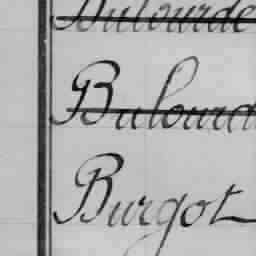 Dulourde
Bulourd
Burgot